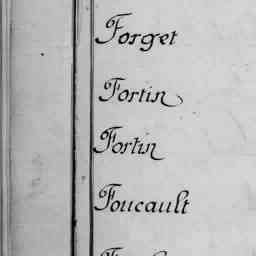 Forget
Fortin
Fortin
Foucault